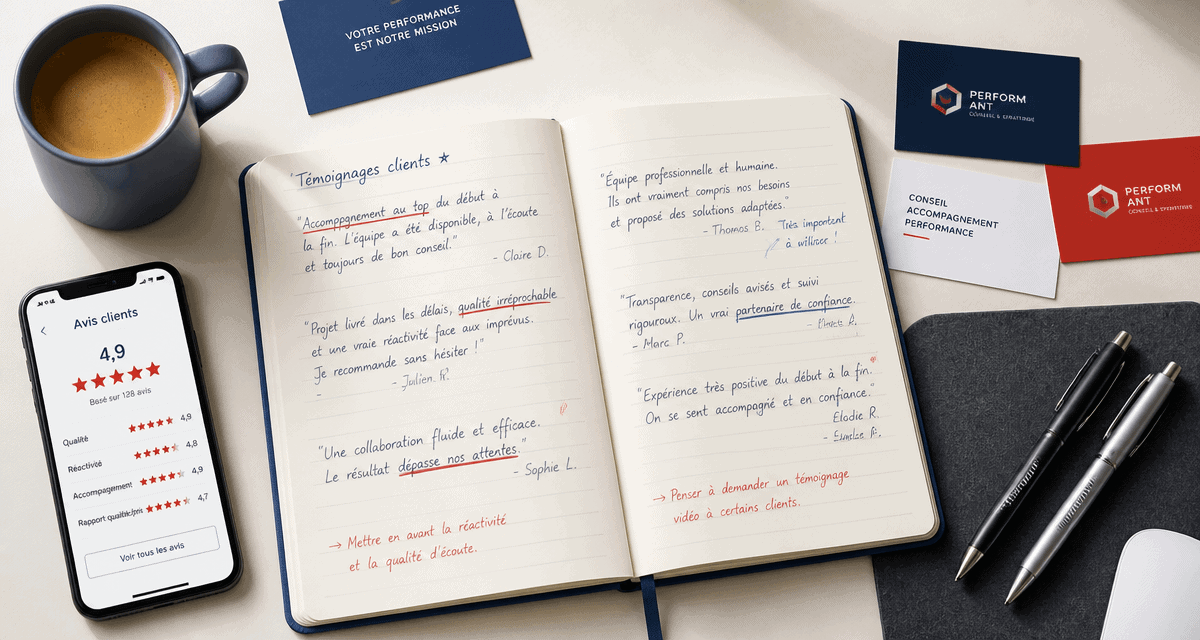 VOTRE PERFORMANCE
EST NOTRE MISSION
Témoignages clients ★
"Accomppgnement au top du début à
la fin. L'équipe a été disponible, à l'écoute
et toujours de bon conseil."
- Claire D.
"Projet livré dans les délais, qualité irréprochable
et une vraie réactivité face aux imprévus.
Je recommande sans hésiter !"
- Julien R.
"Une collaboration fluide et efficace.
Le résultat dépasse nos attentes."
- Sophie L.
→ Mettre en avant la réactivité
et la qualité d'écoute.
"Équipe professionnelle et humaine.
Ils ont vraiment compris nos besoins
et proposé des solutions adaptées."
- Thomas B.
Très important
à
!
"Transparence, conseils avisés et suivi
rigoureux. Un vrai partenaire de confiance.
- Marc P.
"Expérience très positive du début à la fin.
On se sent accompagné et en confiance."
Elodie R.
→ Penser à demander un témoignage
vidéo à certains clients.
Avis clients
4,9
Basé sur 128 avis
Qualité 4,9
Réactivité 4,8
Accompagnement 4,9
Rapport 4,7
Voir tous les avis
PERFORM
ANT
CONSEIL
ACCOMPAGNEMENT
PERFORMANCE
PERFORM
ANT